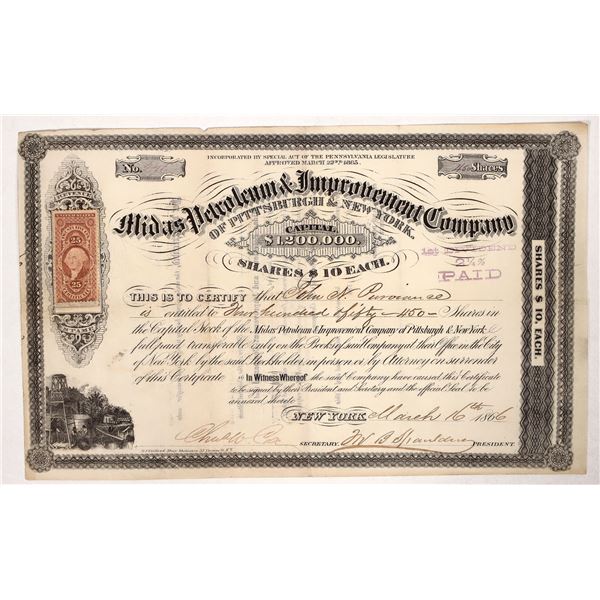 INCORPORATED BY SPECIAL ACT OF THE PENNSYLVANIA LEGISLATURE
APPROVED MARCH 22ND 1865
No. Shares
Midas Petroleum & Improvement Company
OF PITTSBURGH & NEW YORK.
CAPITAL
$1,200,000.
SHARES $10 EACH.
1st DIVIDEND
2½%
PAID
25
25
STAMP
THIS IS TO CERTIFY that John N. Purviance
is entitled to Four hundred fifty — 450 — Shares in
the Capital Stock of the Midas Petroleum & Improvement Company of Pittsburgh & New York
full paid, transferable only on the Books of said Company at their Office in the City
of New York by the said Stockholder in person or by Attorney on surrender
of this Certificate In Witness Whereof the said Company have caused this Certificate
to be signed by their President and Secretary and the official Seal to be
annexed thereto
NEW YORK March 16th 1866
SECRETARY. PRESIDENT.
SHARES $10, EACH.